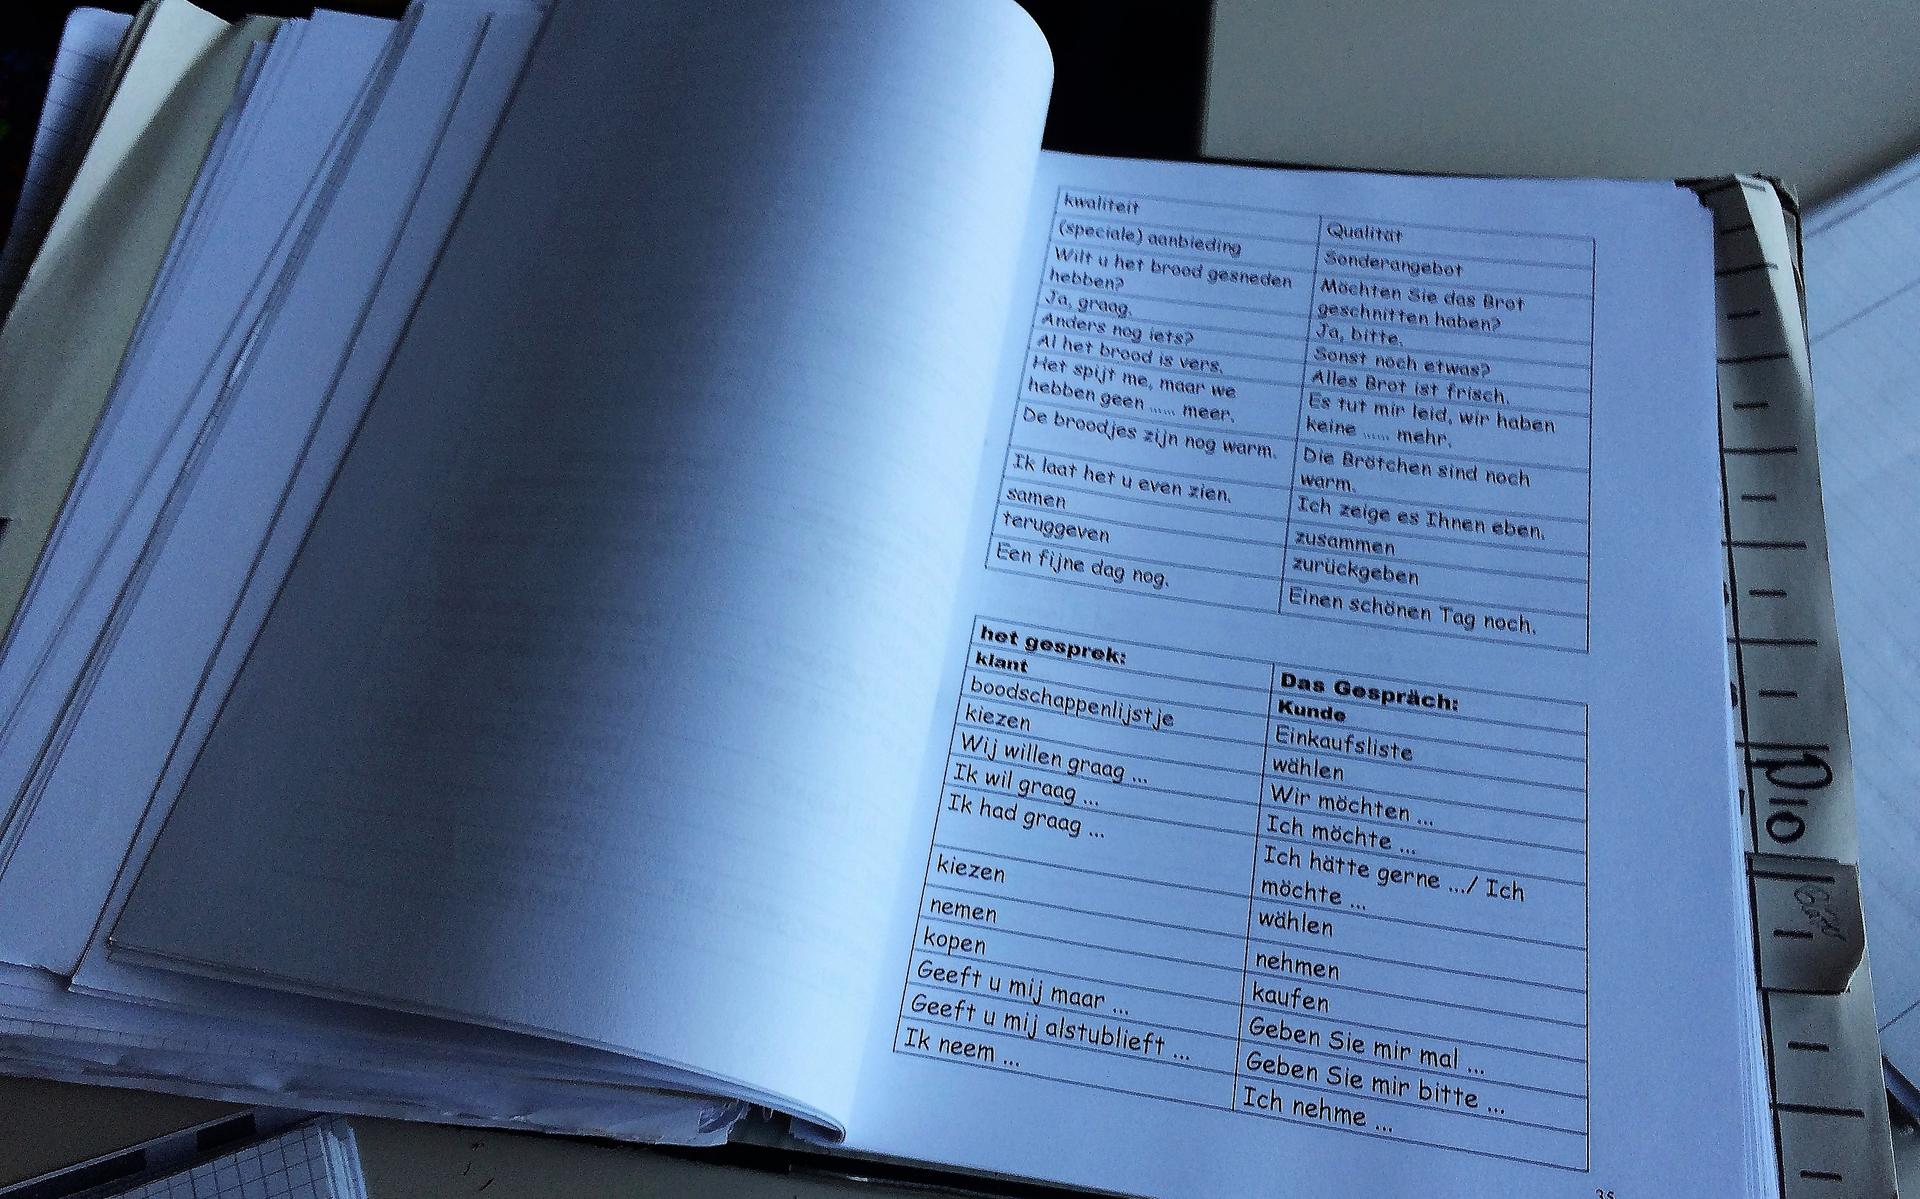 kwaliteit
Qualität
(speciale) aanbieding
Sonderangebot
Wilt u het brood gesneden
hebben?
Möchten Sie das Brot
geschnitten haben?
Ja, graag.
Ja, bitte.
Anders nog iets?
Sonst noch etwas?
Al het brood is vers.
Alles Brot ist frisch.
Het spijt me, maar we
hebben geen ...... meer.
Es tut mir leid, wir haben
keine ...... mehr.
De broodjes zijn nog warm.
Die Brötchen sind noch
warm.
Ik laat het u even zien.
Ich zeige es Ihnen eben.
samen
zusammen
teruggeven
zurückgeben
Een fijne dag nog.
Einen schönen Tag noch.
het gesprek:
Das Gespräch:
klant
Kunde
boodschappenlijstje
Einkaufsliste
kiezen
wählen
Wij willen graag ...
Wir möchten ...
Ik wil graag ...
Ich möchte ...
Ik had graag ...
Ich hätte gerne .../ Ich
möchte ...
kiezen
wählen
nemen
nehmen
kopen
kaufen
Geeft u mij maar ...
Geben Sie mir mal ...
Geeft u mij alstublieft ...
Geben Sie mir bitte ...
Ik neem ...
Ich nehme ...
35